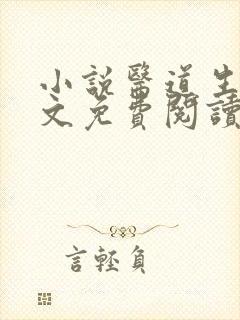 小說醫道生
文免費閱讀
言輕負